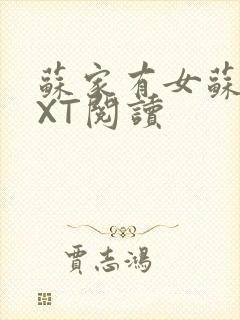 蘇家有女蘇
XT閱讀
賈志鴻